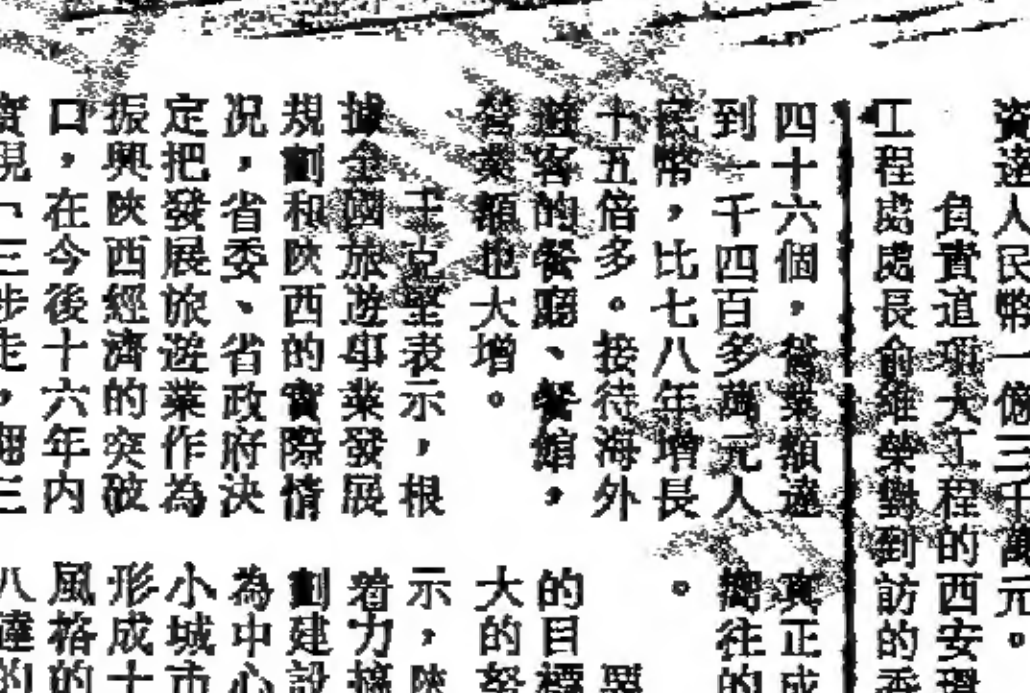 資達人民幣一億三千萬元。
負責這項大工程的西安環
工程處處長俞維榮對到訪的香
四十六個，營業額達
到一千四百多萬元人
民幣，比七八年增長
十五倍多。接待海外
遊客的餐廳、餐館，
營業額也大增。
王克堅表示，根
據全國旅遊事業發展
規劃和陝西的實際情
況，省委、省政府決
定把發展旅遊業作為
振興陝西經濟的突破
口，在今後十六年內
實現「三步走，翻三
真正成
嚮往的
。
的目標
大的努
示，陝
着力搞
劃建設
為中心
小城市
形成十
風格的
八達的